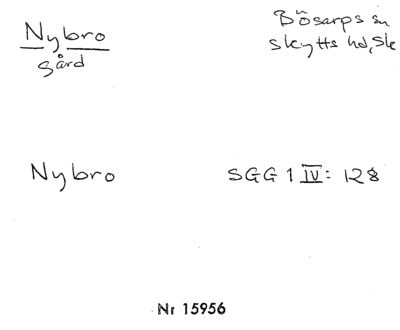 Nybro
gård
Bösarps sn
Skytts hd, Sk
Nybro
SGG 1 IV: 128
Nr 15956